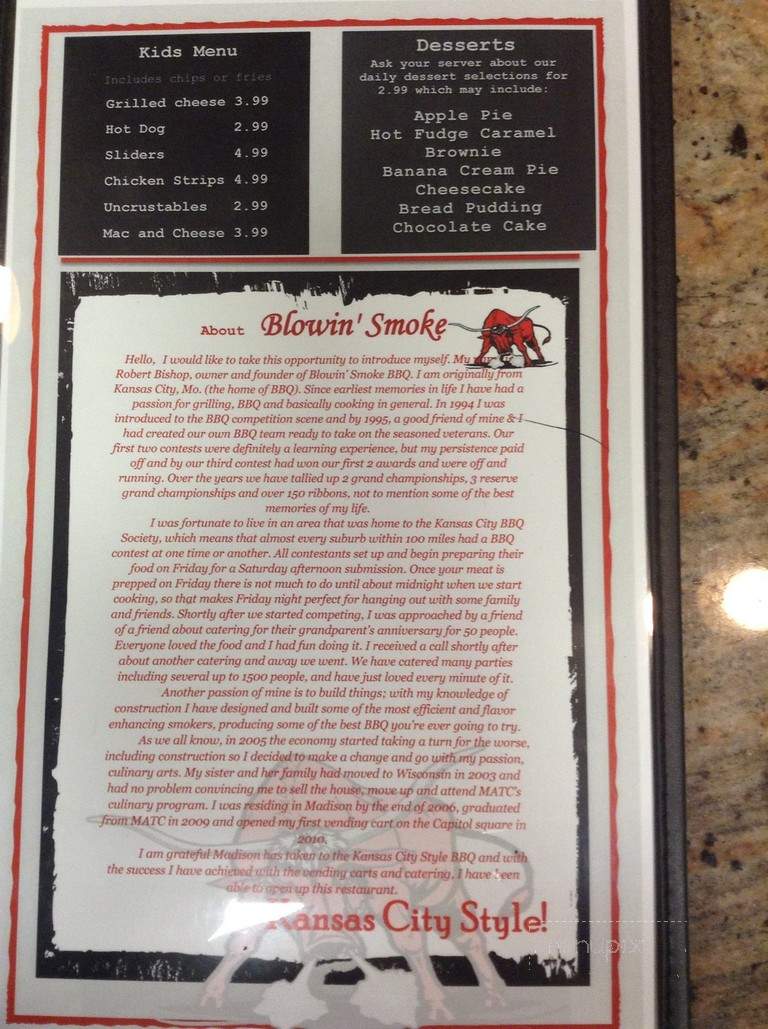 Kids Menu
Includes chips or fries
Grilled cheese 3.99
Hot Dog 2.99
Sliders 4.99
Chicken Strips 4.99
Uncrustables 2.99
Mac and Cheese 3.99
Desserts
Ask your server about our
daily dessert selections for
2.99 which may include:
Apple Pie
Hot Fudge Caramel
Brownie
Banana Cream Pie
Cheesecake
Bread Pudding
Chocolate Cake
About Blowin' Smoke
Hello, I would like to take this opportunity to introduce myself. My
Robert Bishop, owner and founder of Blowin' Smoke BBQ. I am originally from
Kansas City, Mo. (the home of BBQ). Since earliest memories in life I have had a
passion for grilling, BBQ and basically cooking in general. In 1994 I was
introduced to the BBQ competition scene and by 1995, a good friend of mine & I
had created our own BBQ team ready to take on the seasoned veterans. Our
first two contests were definitely a learning experience, but my persistence paid
off and by our third contest had won our first 2 awards and were off and
running. Over the years we have tallied up 2 grand championships, 3 reserve
grand championships and over 150 ribbons, not to mention some of the best
memories of my life.
I was fortunate to live in an area that was home to the Kansas City BBQ
Society, which means that almost every suburb within 100 miles had a BBQ
contest at one time or another. All contestants set up and begin preparing their
food on Friday for a Saturday afternoon submission. Once your meat is
prepped on Friday there is not much to do until about midnight when we start
cooking, so that makes Friday night perfect for hanging out with some family
and friends. Shortly after we started competing, I was approached by a friend
of a friend about catering for their grandparent's anniversary for 50 people.
Everyone loved the food and I had fun doing it. I received a call shortly after
about another catering and away we went. We have catered many parties
including several up to 1500 people, and have just loved every minute of it.
Another passion of mine is to build things; with my knowledge of
construction I have designed and built some of the most efficient and flavor
enhancing smokers, producing some of the best BBQ you're ever going to try.
As we all know, in 2005 the economy started taking a turn for the worse,
including construction so I decided to make a change and go with my passion,
culinary arts. My sister and her family had moved to Wisconsin in 2003 and
had no problem convincing me to sell the house, move up and attend MATC's
culinary program. I was residing in Madison by the end of 2006, graduated
from MATC in 2009 and opened my first vending cart on the Capitol square in
2010.
I am grateful Madison has taken to the Kansas City Style BBQ and with
the success I have achieved with the vending carts and catering, I have been
able to open up this restaurant.
Kansas City Style!
menupix